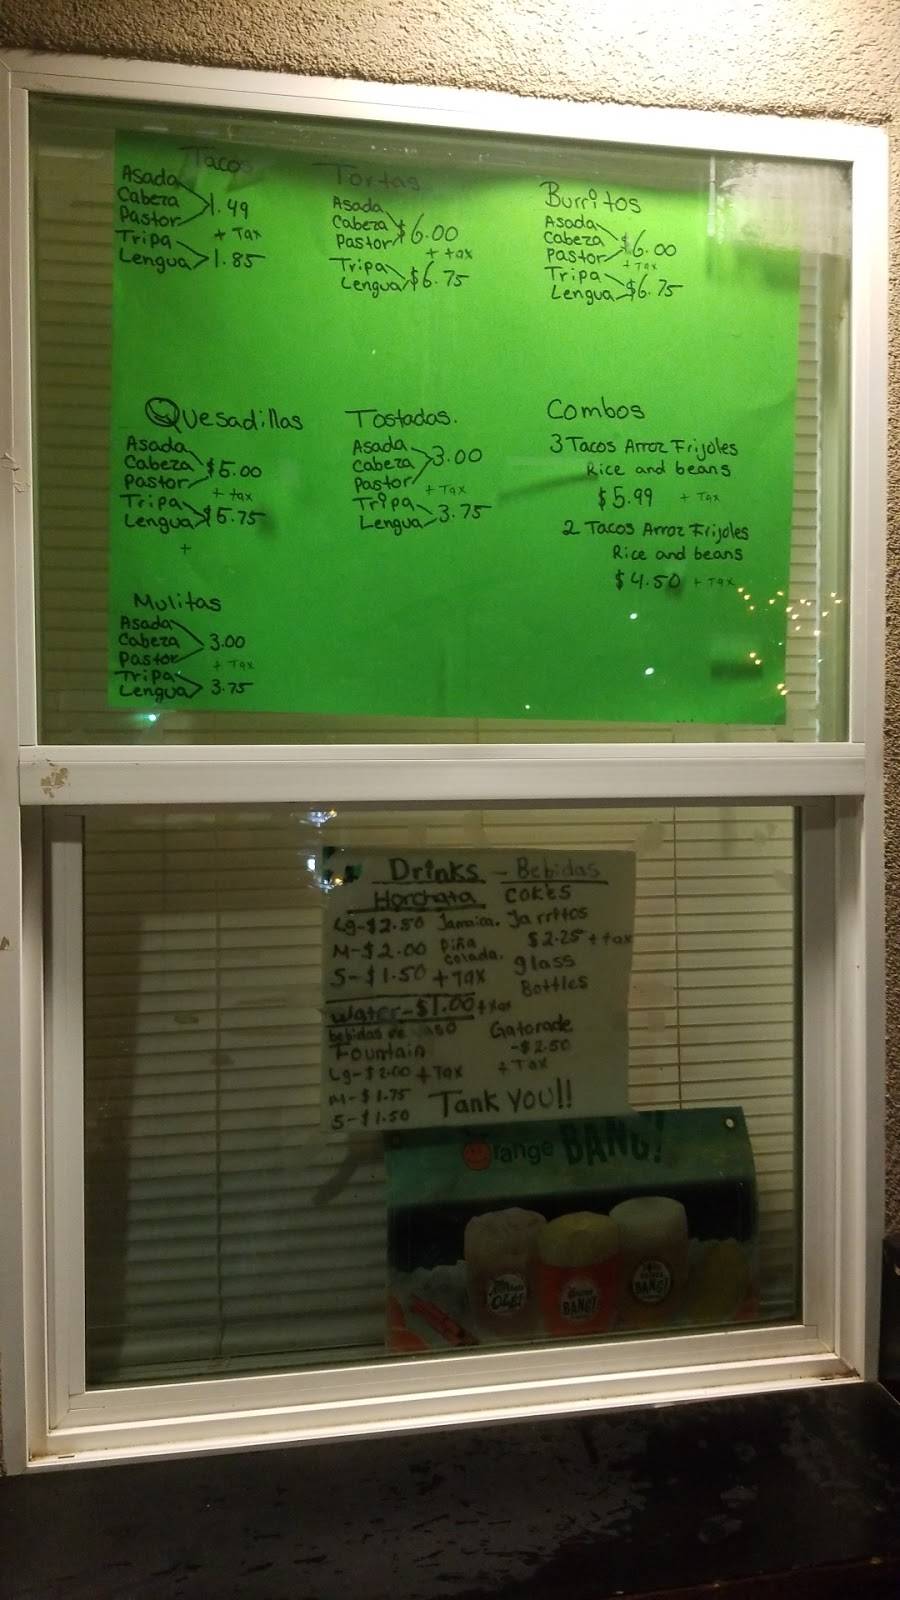 Tacos
Asada
Cabeza
Pastor
1.49
+ Tax
Tripa
Lengua
1.85
Tortas
Asada
Cabeza
Pastor
$6.00
+ tax
Tripa
Lengua
$6.75
Burritos
Asada
Cabeza
Pastor
$6.00
+ Tax
Tripa
Lengua
$6.75
Quesadillas
Asada
Cabeza
Pastor
$5.00
+ tax
Tripa
Lengua
$5.75
+
Tostadas.
Asada
Cabeza
Pastor
3.00
+ Tax
Tripa
Lengua
3.75
Combos
3 Tacos Arroz Frijoles
Rice and beans
$5.99 + Tax
2 Tacos Arroz Frijoles
Rice and beans
$4.50 + Tax
Mulitas
Asada
Cabeza
Pastor
3.00
+ Tax
Tripa
Lengua
3.75
Drinks - Bebidas
Horchata
Lg-$2.50 Jamaica.
M-$2.00 Piña colada.
S-$1.50 + Tax
COKES
Jarritos
$2.25 + tax
glass
Bottles
Water-$1.00 + tax
bebidas de vaso
Fountain
Lg-$2.00 + Tax
M-$1.75
S-$1.50
Gatorade
-$2.50
+ Tax
Tank YOU!!
Orange BANG!
BANG!
BANG!